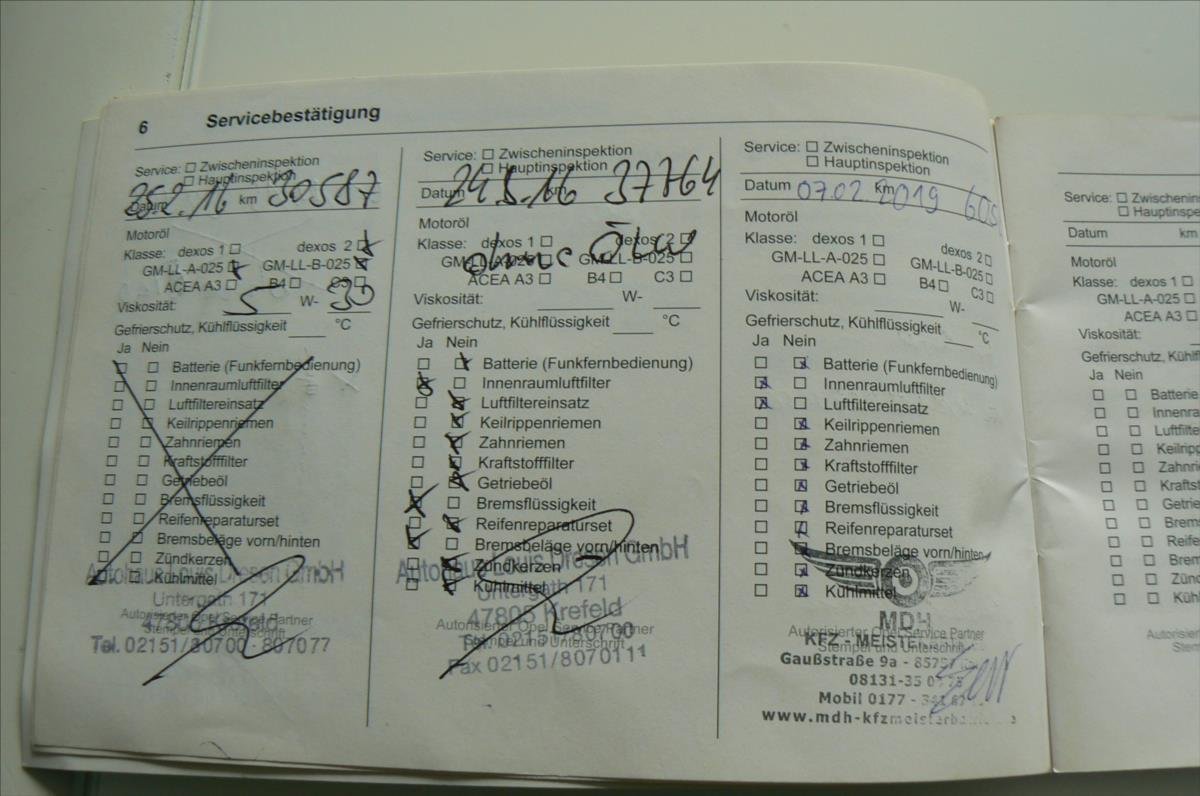 6 Servicebestätigung
Service: ☐ Zwischeninspektion
☐ Hauptinspektion
Datum 25.2.16 km 30587
Motoröl
Klasse: dexos 1 ☐ dexos 2 ☒
GM-LL-A-025 ☒ GM-LL-B-025 ☒
ACEA A3 ☐ B4 ☐ C3 ☐
Viskosität: 5 W- 30
Gefrierschutz, Kühlflüssigkeit ____ °C
Ja Nein
☐ ☐ Batterie (Funkfernbedienung)
☐ ☐ Innenraumluftfilter
☐ ☐ Luftfiltereinsatz
☐ ☐ Keilrippenriemen
☐ ☐ Zahnriemen
☐ ☐ Kraftstofffilter
☐ ☐ Getriebeöl
☐ ☐ Bremsflüssigkeit
☐ ☐ Reifenreparaturset
☐ ☐ Bremsbeläge vorn/hinten
☐ ☐ Zündkerzen
☐ ☐ Kühlmittel
Autohaus Louis Dresen GmbH
Untergath 171
47805 Krefeld
Autorisierter Opel Service Partner
Stempel und Unterschrift
Tel. 02151/80700 - 807077
Service: ☐ Zwischeninspektion
☐ Hauptinspektion
Datum km 37764
Motoröl
Klasse: dexos 1 ☐ dexos 2 ☐
ohne
GM-LL-A-025 ☐ GM-LL-B-025 ☐
ACEA A3 ☐ B4 ☐ C3 ☐
Viskosität: ____ W- ____
Gefrierschutz, Kühlflüssigkeit ____ °C
Ja Nein
☐ ☒ Batterie (Funkfernbedienung)
☒ ☐ Innenraumluftfilter
☐ ☒ Luftfiltereinsatz
☐ ☒ Keilrippenriemen
☐ ☒ Zahnriemen
☐ ☒ Kraftstofffilter
☐ ☒ Getriebeöl
☒ ☐ Bremsflüssigkeit
☐ ☒ Reifenreparaturset
☒ ☐ Bremsbeläge vorn/hinten
☐ ☒ Zündkerzen
☐ ☒ Kühlmittel
Autohaus Louis Dresen GmbH
Untergath 171
47805 Krefeld
Autorisierter Opel Service Partner
Tel. 02151/80700
Stempel und Unterschrift
Fax 02151/8070111
Service: ☐ Zwischeninspektion
☐ Hauptinspektion
Datum 07.02.2019 km
Motoröl
Klasse: dexos 1 ☐ dexos 2 ☐
GM-LL-A-025 ☐ GM-LL-B-025 ☐
ACEA A3 ☐ B4 ☐ C3 ☐
Viskosität: ____ W- ____
Gefrierschutz, Kühlflüssigkeit ____ °C
Ja Nein
☐ ☒ Batterie (Funkfernbedienung)
☒ ☐ Innenraumluftfilter
☒ ☐ Luftfiltereinsatz
☐ ☒ Keilrippenriemen
☐ ☒ Zahnriemen
☐ ☒ Kraftstofffilter
☐ ☒ Getriebeöl
☐ ☒ Bremsflüssigkeit
☐ ☒ Reifenreparaturset
☐ ☒ Bremsbeläge vorn/hinten
☐ ☒ Zündkerzen
☐ ☒ Kühlmittel
MDH
Autorisierter Opel Service Partner
KFZ - MEISTE
Stempel und Unterschrift
Gaußstraße 9a -
08131-35 0
Mobil 0177 -
www.mdh-kfzmeisterb
Service: ☐ Zwischenin
☐ Hauptinspe
Datum km
Motoröl
Klasse: dexos 1 ☐
GM-LL-A-025 ☐
ACEA A3 ☐
Viskosität:
Gefrierschutz, Kühlfl
Ja Nein
☐ ☐ Batterie
☐ ☐ Innenra
☐ ☐ Luftfilte
☐ ☐ Keilripp
☐ ☐ Zahnri
☐ ☐ Kraftst
☐ ☐ Getrie
☐ ☐ Brems
☐ ☐ Reife
☐ ☐ Brem
☐ ☐ Zünd
☐ ☐ Kühl
Autorisier
Stem